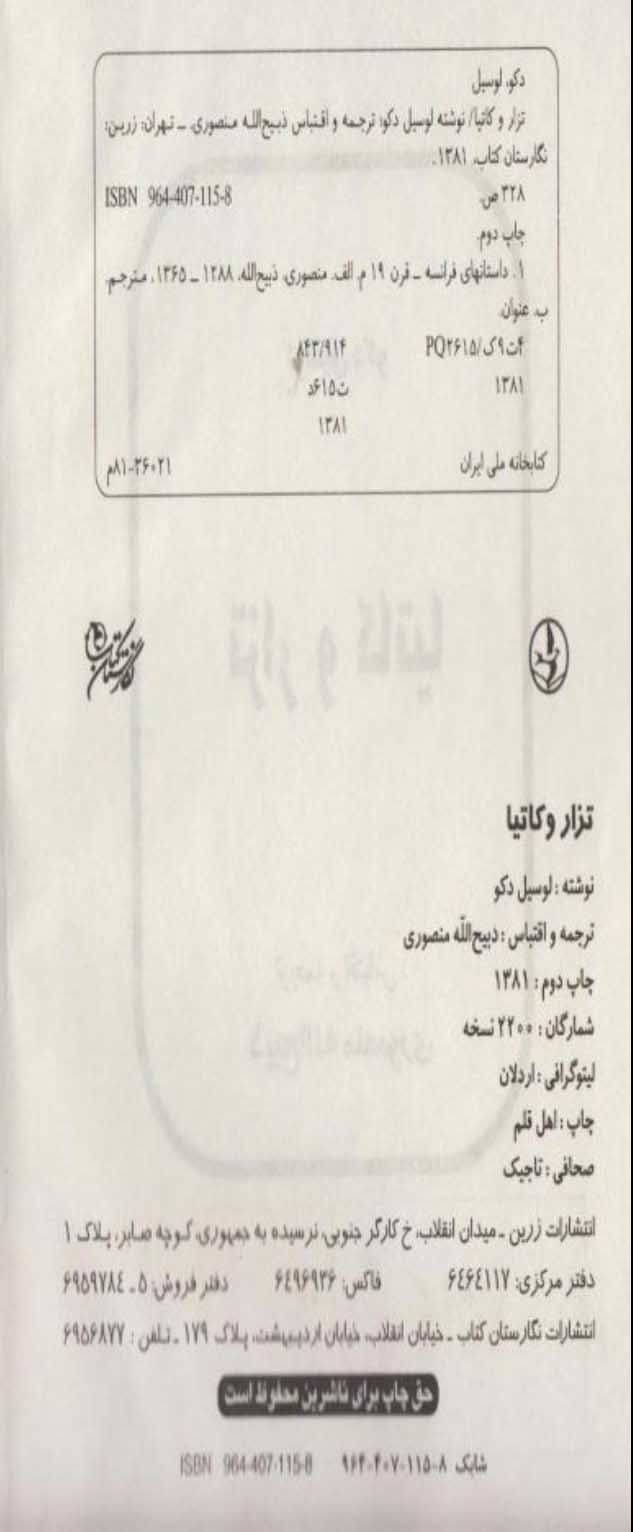 دکو، لوسیل
تزار و کاتیا/ نوشته لوسیل دکو؛ ترجمه و اقتباس ذبیح‌الله منصوری. ــ تهران: زرین:
نگارستان کتاب، ۱۳۸۱.
۳۲۸ ص. ISBN 964-407-115-8
چاپ دوم.
۱. داستانهای فرانسه ــ قرن ۱۹ م. الف. منصوری، ذبیح‌الله، ۱۲۸۸ ــ ۱۳۶۵، مترجم.
ب. عنوان.
۴ت۹ک/PQ۲۶۱۵ ۸۴۳/۹۱۴
۱۳۸۱ ت۶۱۵د
۱۳۸۱
کتابخانه ملی ایران ۸۱-۳۶۰۲۱م
نگارستان کتاب
تزار و کاتیا
نوشته : لوسیل دکو
ترجمه و اقتباس : دبیح‌الله منصوری
چاپ دوم : ۱۳۸۱
شمارگان : ۲۲۰۰ نسخه
لیتوگرافی : اردلان
چاپ : اهل قلم
صحافی : تاجیک
انتشارات زرین ـ میدان انقلاب، خ کارگر جنوبی، نرسیده به جمهوری، کوچه صابر، پلاک ۱
دفتر مرکزی: ۶۴۶۴۱۱۷ فاکس: ۶۴۹۶۹۳۶ دفتر فروش: ۵ ـ ۶۹۵۹۷۸۴
انتشارات نگارستان کتاب ـ خیابان انقلاب، خیابان اردیبهشت، پلاک ۱۷۹ ـ تلفن : ۶۹۵۶۸۷۷
حق چاپ برای ناشرین محفوظ است
شابک ۸-۱۱۵-۴۰۷-۹۶۴ ISBN 964-407-115-8